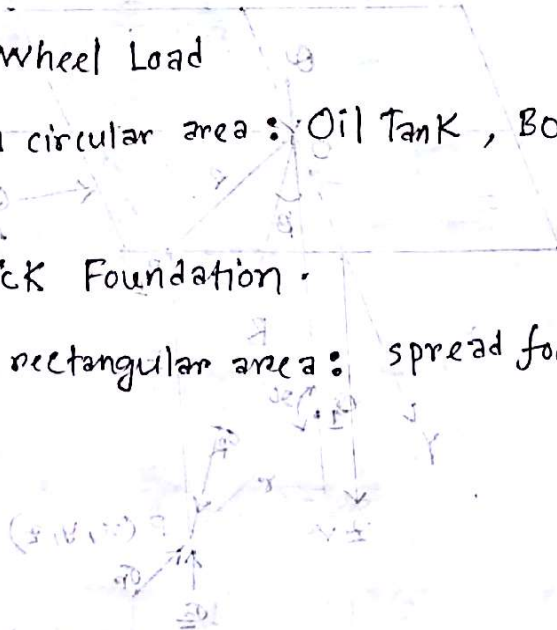 Wheel Load
circular area : Oil Tank , Bo
ck Foundation .
rectangular area : spread fo